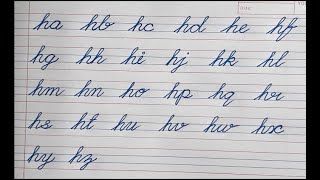 ha hb hc hd he hf
hg hh hi hj hk hl
hm hn ho hp hq hr
hs ht hu hv hw hx
hy hz